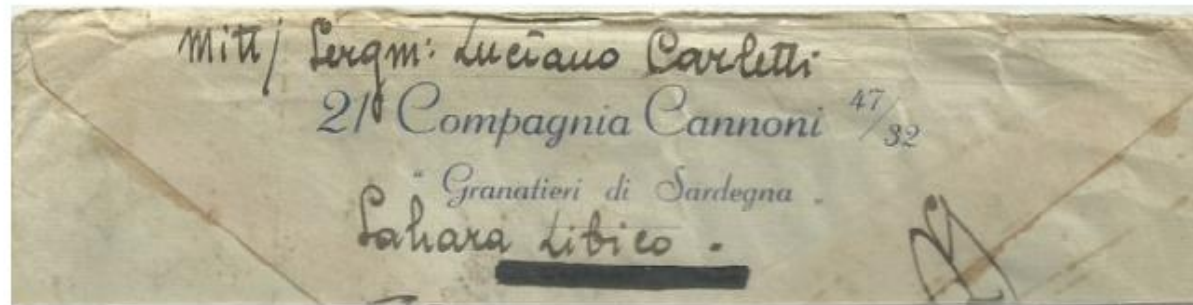 Mitt/ Sergm: Luciano Carletti
21 Compagnia Cannoni 47/32
"Granatieri di Sardegna"
Sahara Libico.